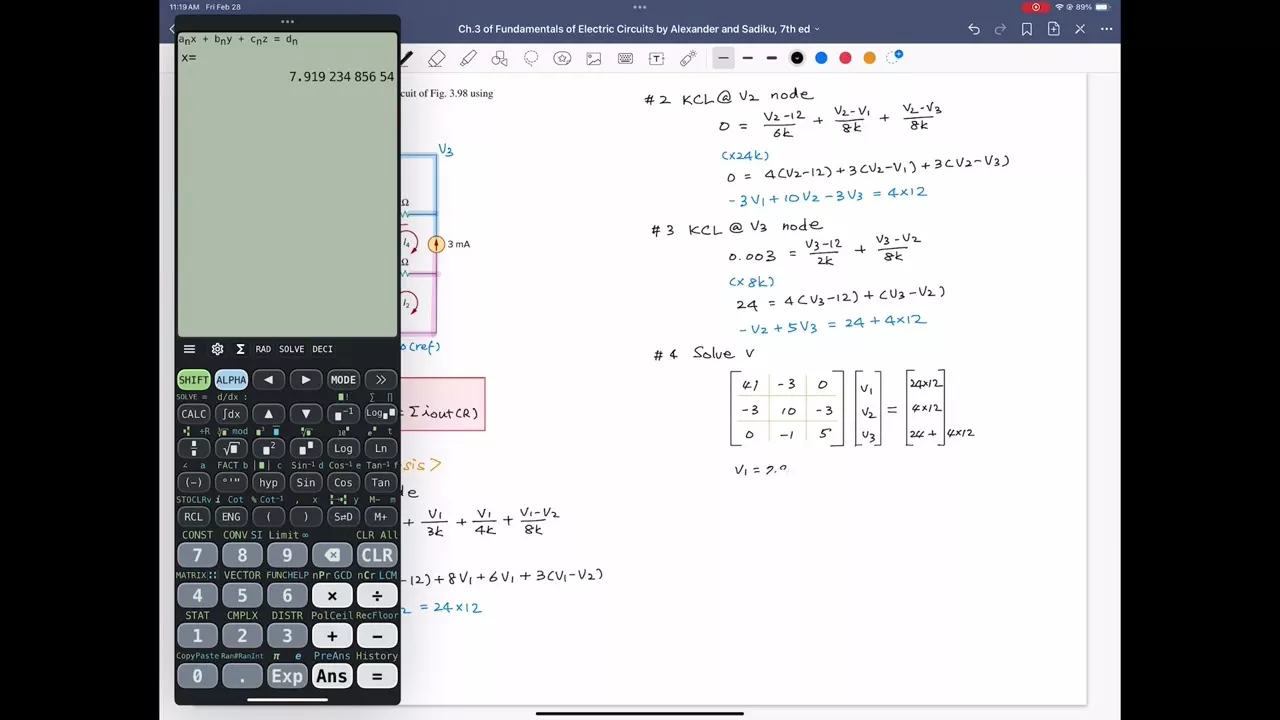 11:19 AM Fri Feb 28
89%
Ch.3 of Fundamentals of Electric Circuits by Alexander and Sadiku, 7th ed
aₙx + bₙy + cₙz = dₙ
x=
7.919 234 856 54
RAD SOLVE DECI
SHIFT ALPHA MODE
SOLVE = d/dx :
CALC ∫dx
mod
Log Ln
FACT Sin⁻¹ Cos⁻¹ Tan⁻¹
(−) hyp Sin Cos Tan
STO CLRv i Cot % Cot⁻¹ , x y M− m
RCL ENG ( ) S⇌D M+
CONST CONV SI Limit ∞ CLR All
7 8 9 CLR
MATRIX VECTOR FUNC HELP nPr GCD nCr LCM
4 5 6 × ÷
STAT CMPLX DISTR Pol Ceil Rec Floor
1 2 3 + −
CopyPaste Ran# RanInt π e PreAns History
0 . Exp Ans =
cuit of Fig. 3.98 using
V3
Ω
I4
3 mA
Ω
I2
o(ref)
= Σ iout(R)
sis>
de
+ V1/3k + V1/4k + (V1-V2)/8k
-12) + 8V1 + 6V1 + 3(V1-V2)
2 = 24x12
#2 KCL@ V2 node
0 = (V2-12)/6k + (V2-V1)/8k + (V2-V3)/8k
(x24k)
0 = 4(V2-12) + 3(V2-V1) + 3(V2-V3)
-3V1 + 10V2 - 3V3 = 4x12
#3 KCL @ V3 node
0.003 = (V3-12)/2k + (V3-V2)/8k
(x8k)
24 = 4(V3-12) + (V3-V2)
-V2 + 5V3 = 24 + 4x12
#4 Solve V
41 -3 0 V1 24x12
-3 10 -3 V2 = 4x12
0 -1 5 V3 24 + 4x12
V1 = 7.9